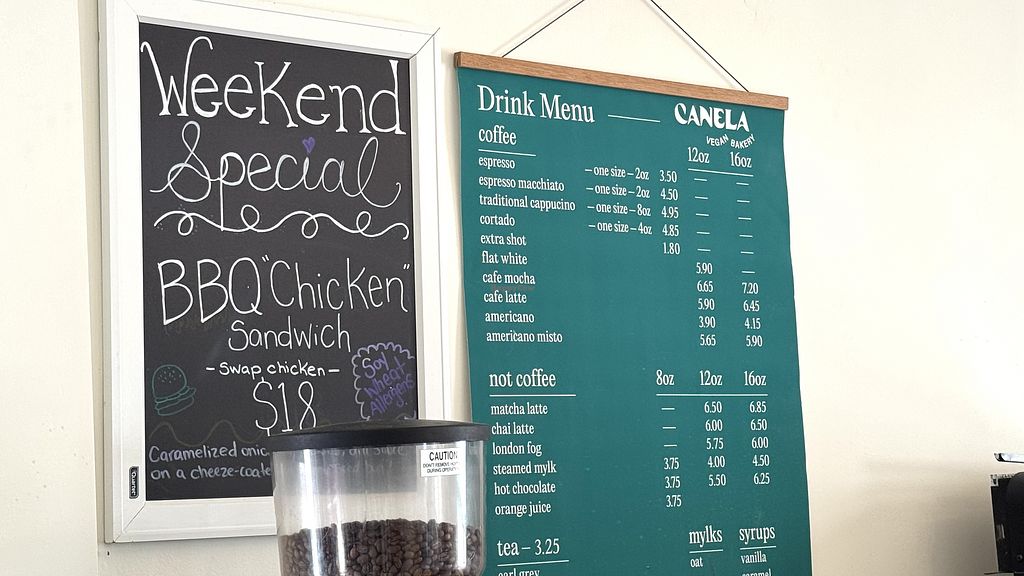 Weekend
Special
BBQ "Chicken"
Sandwich
- Swap chicken -
$18
Soy
Wheat
Allergens
Caramelized
on a cheeze-coate
Quartet
CAUTION
Drink Menu
CANELA
VEGAN BAKERY
coffee 12oz 16oz
espresso – one size – 2oz 3.50 — —
espresso macchiato – one size – 2oz 4.50 — —
traditional cappuccino – one size – 8oz 4.95 — —
cortado – one size – 4oz 4.85 — —
extra shot 1.80 — —
flat white 5.90 —
cafe mocha 6.65 7.20
cafe latte 5.90 6.45
americano 3.90 4.15
americano misto 5.65 5.90
not coffee 8oz 12oz 16oz
matcha latte — 6.50 6.85
chai latte — 6.00 6.50
london fog — 5.75 6.00
steamed mylk 3.75 4.00 4.50
hot chocolate 3.75 5.50 6.25
orange juice 3.75
tea – 3.25 mylks syrups
earl grey oat vanilla
caramel